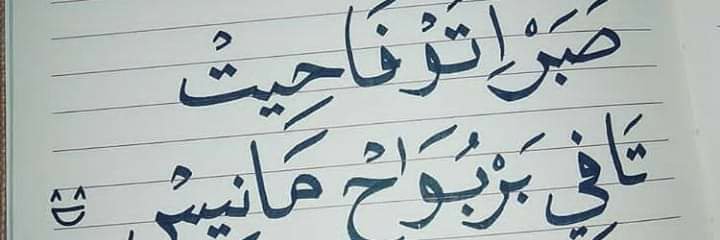 صَبَرْ اِتَوْ فَاحِيتْ
تَافِي بَرْبُوَاحْ مَانِيسْ